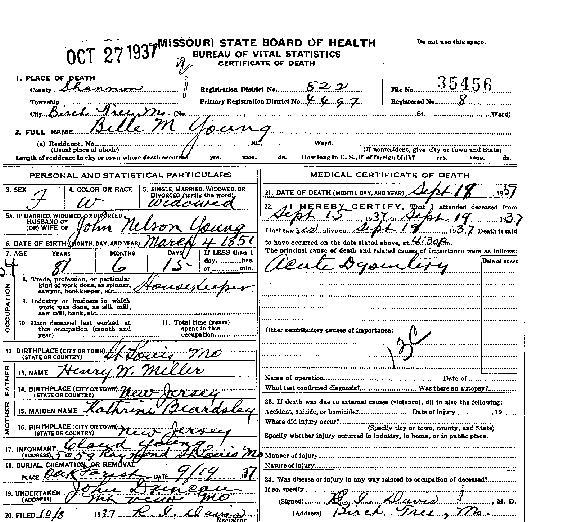 OCT 27 1937
MISSOURI STATE BOARD OF HEALTH
BUREAU OF VITAL STATISTICS
CERTIFICATE OF DEATH
Do not use this space.
1. PLACE OF DEATH
County Shannon Registration District No. 822 File No. 35456
Township Primary Registration District No. 4497 Registered No. 8
City Birch Tree, Mo. No. St. Ward)
2. FULL NAME Belle M Young
(a) Residence, No. St. Ward.
(Usual place of abode) (If nonresident, give city or town and State)
Length of residence in city or town where death occurred yrs. mos. ds. How long in U.S., if of foreign birth? yrs. mos. ds.
PERSONAL AND STATISTICAL PARTICULARS
3. SEX F
4. COLOR OR RACE W
5. SINGLE, MARRIED, WIDOWED, OR DIVORCED (write the word) Widowed
5a. IF MARRIED, WIDOWED, OR DIVORCED
HUSBAND OF (OR) WIFE OF John Nelson Young
6. DATE OF BIRTH (MONTH, DAY, AND YEAR) March 4 1856
7. AGE YEARS 81 MONTHS 6 DAYS 15 If LESS than 1 day, hrs. or min.
OCCUPATION
8. Trade, profession, or particular kind of work done, as spinner, sawyer, bookkeeper, etc. Housekeeper
9. Industry or business in which work was done, as silk mill, saw mill, bank, etc.
10. Date deceased last worked at this occupation (month and year)
11. Total time (years) spent in this occupation
12. BIRTHPLACE (CITY OR TOWN) St Louis Mo
(STATE OR COUNTRY)
FATHER
13. NAME Henry W. Miller
14. BIRTHPLACE (CITY OR TOWN) New Jersey
(STATE OR COUNTRY)
MOTHER
15. MAIDEN NAME Kathrine Beardsley
16. BIRTHPLACE (CITY OR TOWN) New Jersey
(STATE OR COUNTRY)
17. INFORMANT Claud Young
(ADDRESS) Raymond St Louis Mo
18. BURIAL, CREMATION, OR REMOVAL
PLACE Oak Forest DATE 9/19 37
19. UNDERTAKER John Duncan
(ADDRESS) Mtn View Mo
20. FILED 10/8 1937 R. I. Davis
Registrar
MEDICAL CERTIFICATE OF DEATH
21. DATE OF DEATH (MONTH, DAY, AND YEAR) Sept 19 1937
22. I HEREBY CERTIFY, That I attended deceased from
Sept 15 1937, Sept 19 1937
I last saw alive on Sept 18 1937 Death is said
to have occurred on the date stated above, at 6:30 P.m.
The principal cause of death and related causes of importance were as follows:
Date of onset
Acute Dysentery
Other contributory causes of importance:
Name of operation Date of
What test confirmed diagnosis? Was there an autopsy?
23. If death was due to external causes (violence), fill in also the following:
Accident, suicide, or homicide? Date of injury , 19
Where did injury occur?
(Specify city or town, county, and State)
Specify whether injury occurred in industry, in home, or in public place.
Manner of injury
Nature of injury
24. Was disease or injury in any way related to occupation of deceased?
If so, specify
(Signed) R. I. Davis, M. D.
(Address) Birch Tree, Mo.